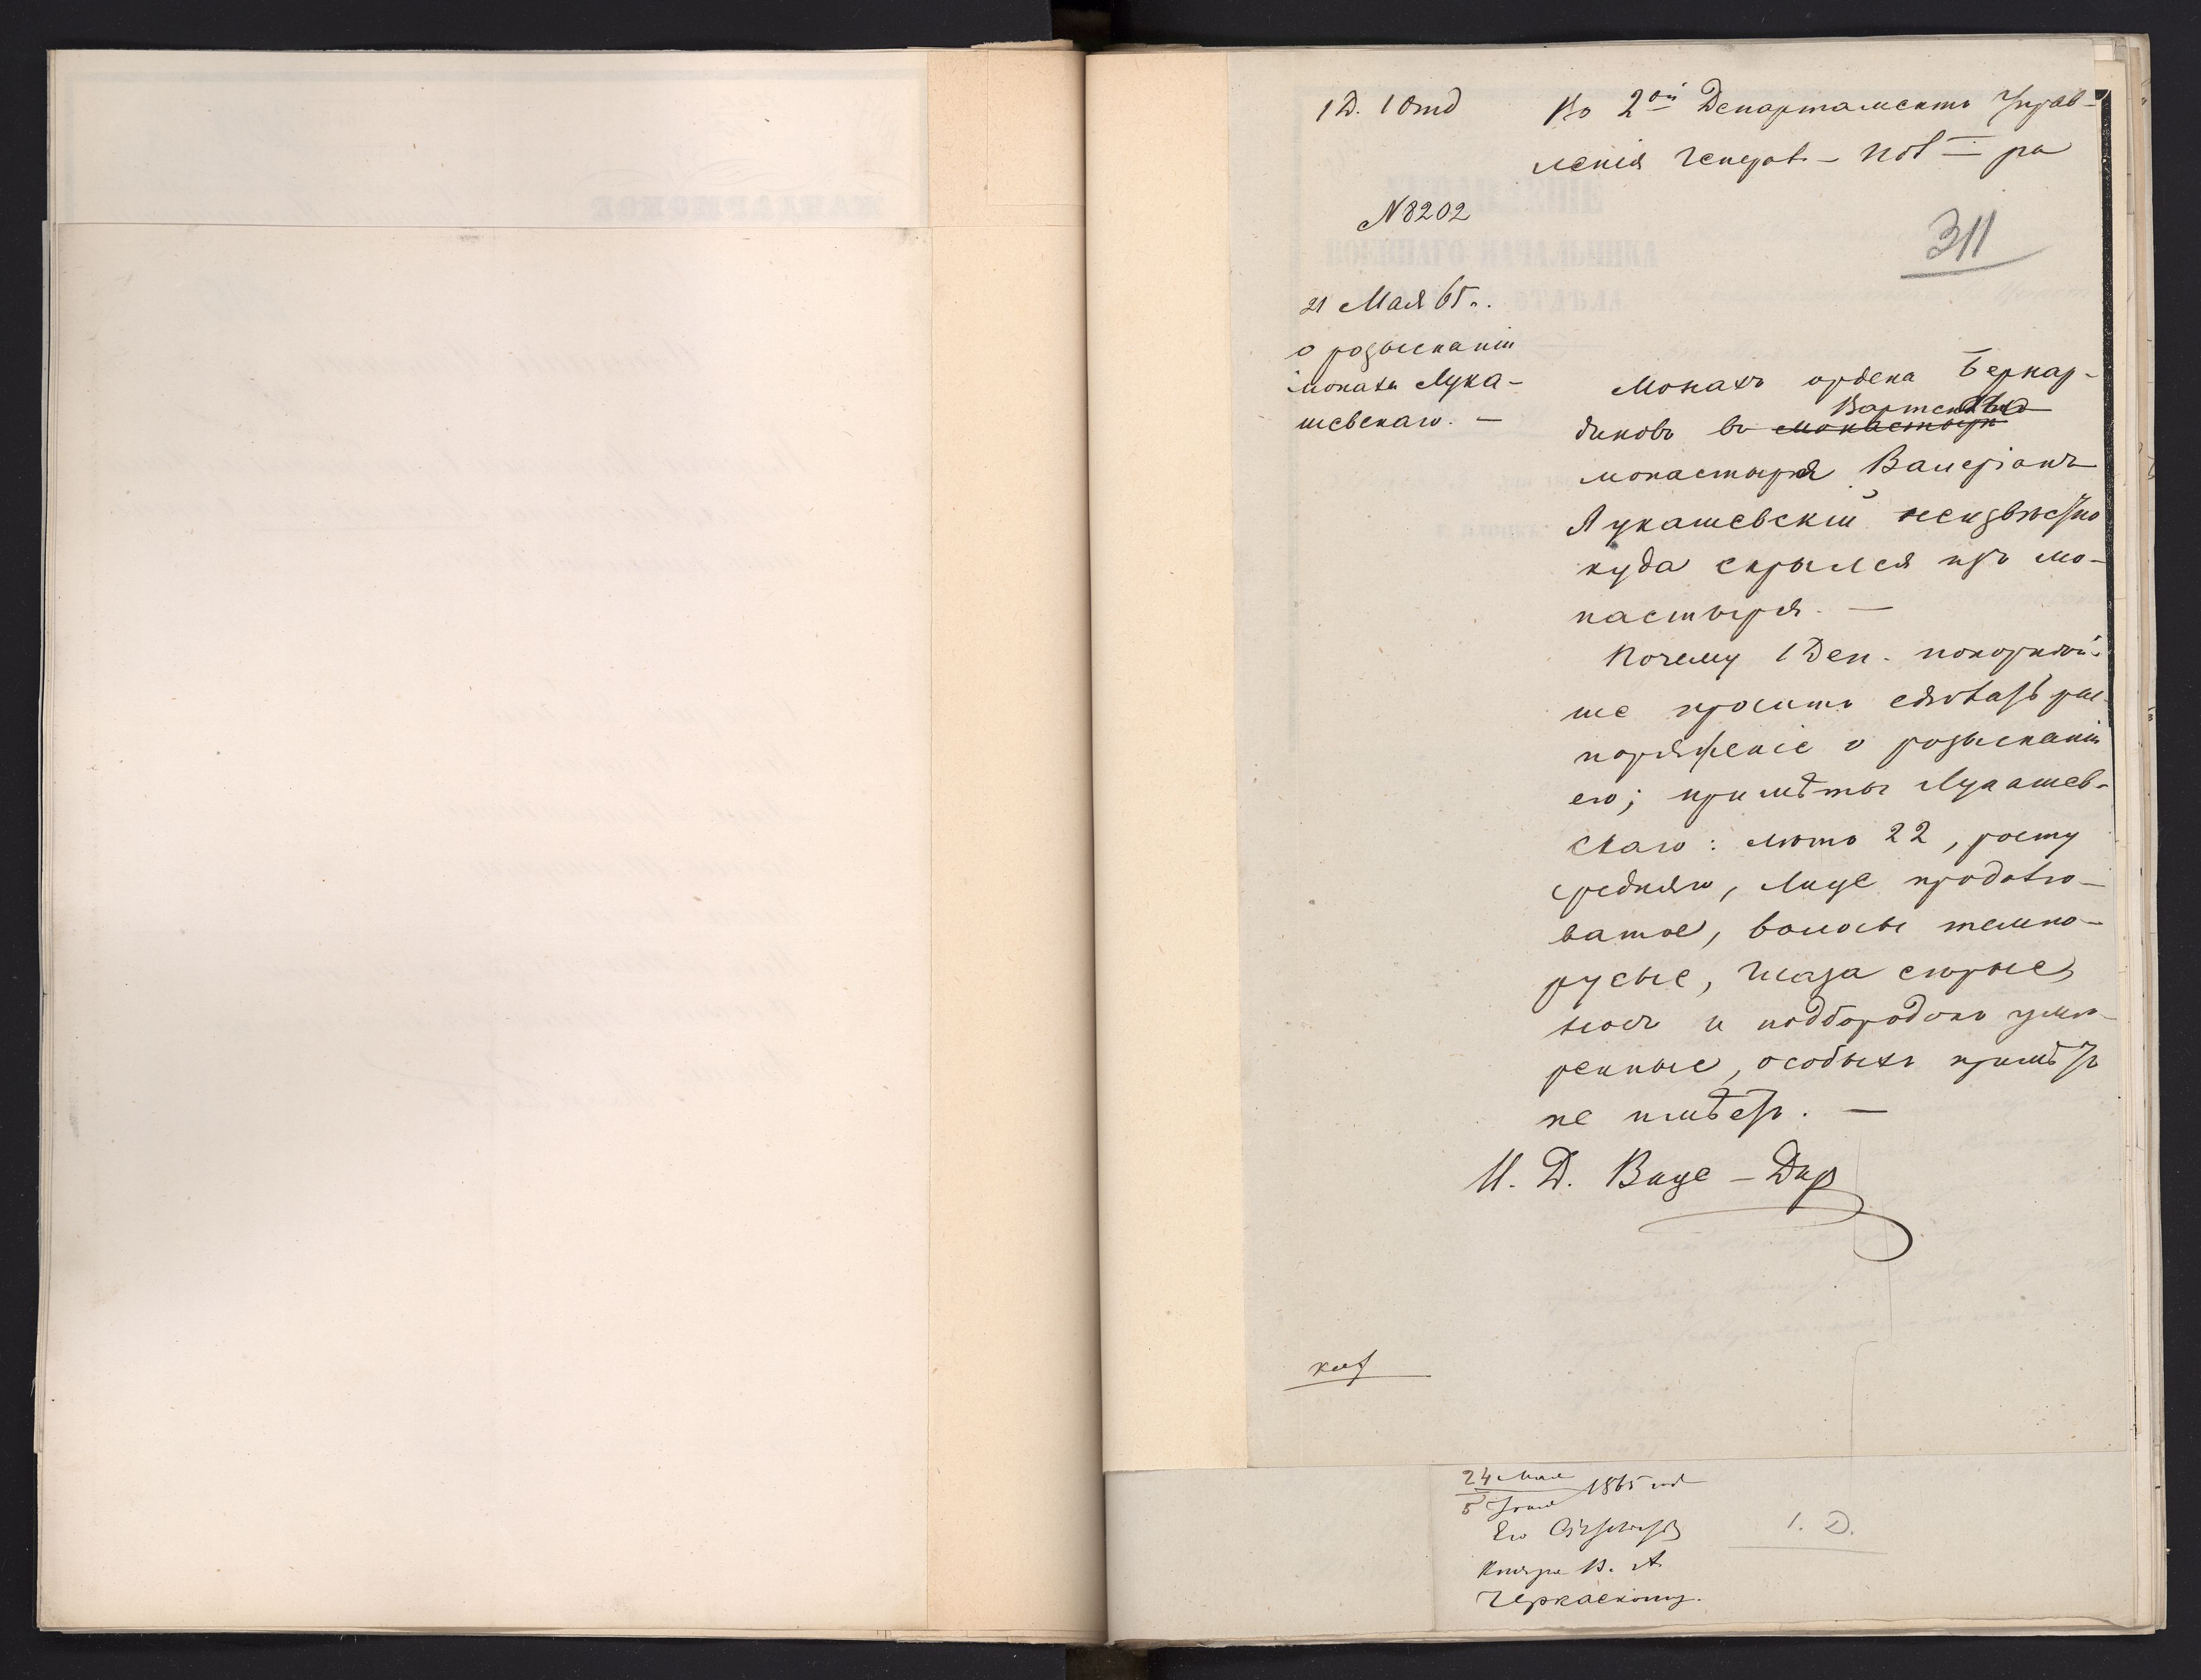 1 Д. 1 Отд
Во 2ой Департаментъ Управ-
ленія Генерал-Пол—ра
№ 8202
311
21 Мая 65 г.
о розысканіи
монаха Лука-
шевскаго. —
Монахъ ордена Бернар-
диновъ въ монастыр
монастыря Валеріанъ
Лукашевскій неизвѣстно
куда скрылся изъ мо-
настыря. —
Почему 1 Деп. покорнѣй-
ше проситъ сдѣлать рас-
поряженіе о розысканіи
его; примѣты Лукашев-
скаго: лѣтъ 22, росту
средняго, лице продолго-
ватое, волосы темно-
русые, глаза сѣрые,
носъ и подбородокъ умѣ-
ренные, особыхъ примѣтъ
не имѣетъ. —
И. Д. Вице-Дир
24 Мая
5 Іюня 1865 год
Его Сіятельству
Князю В. А.
Черкаскому.
1. Д.